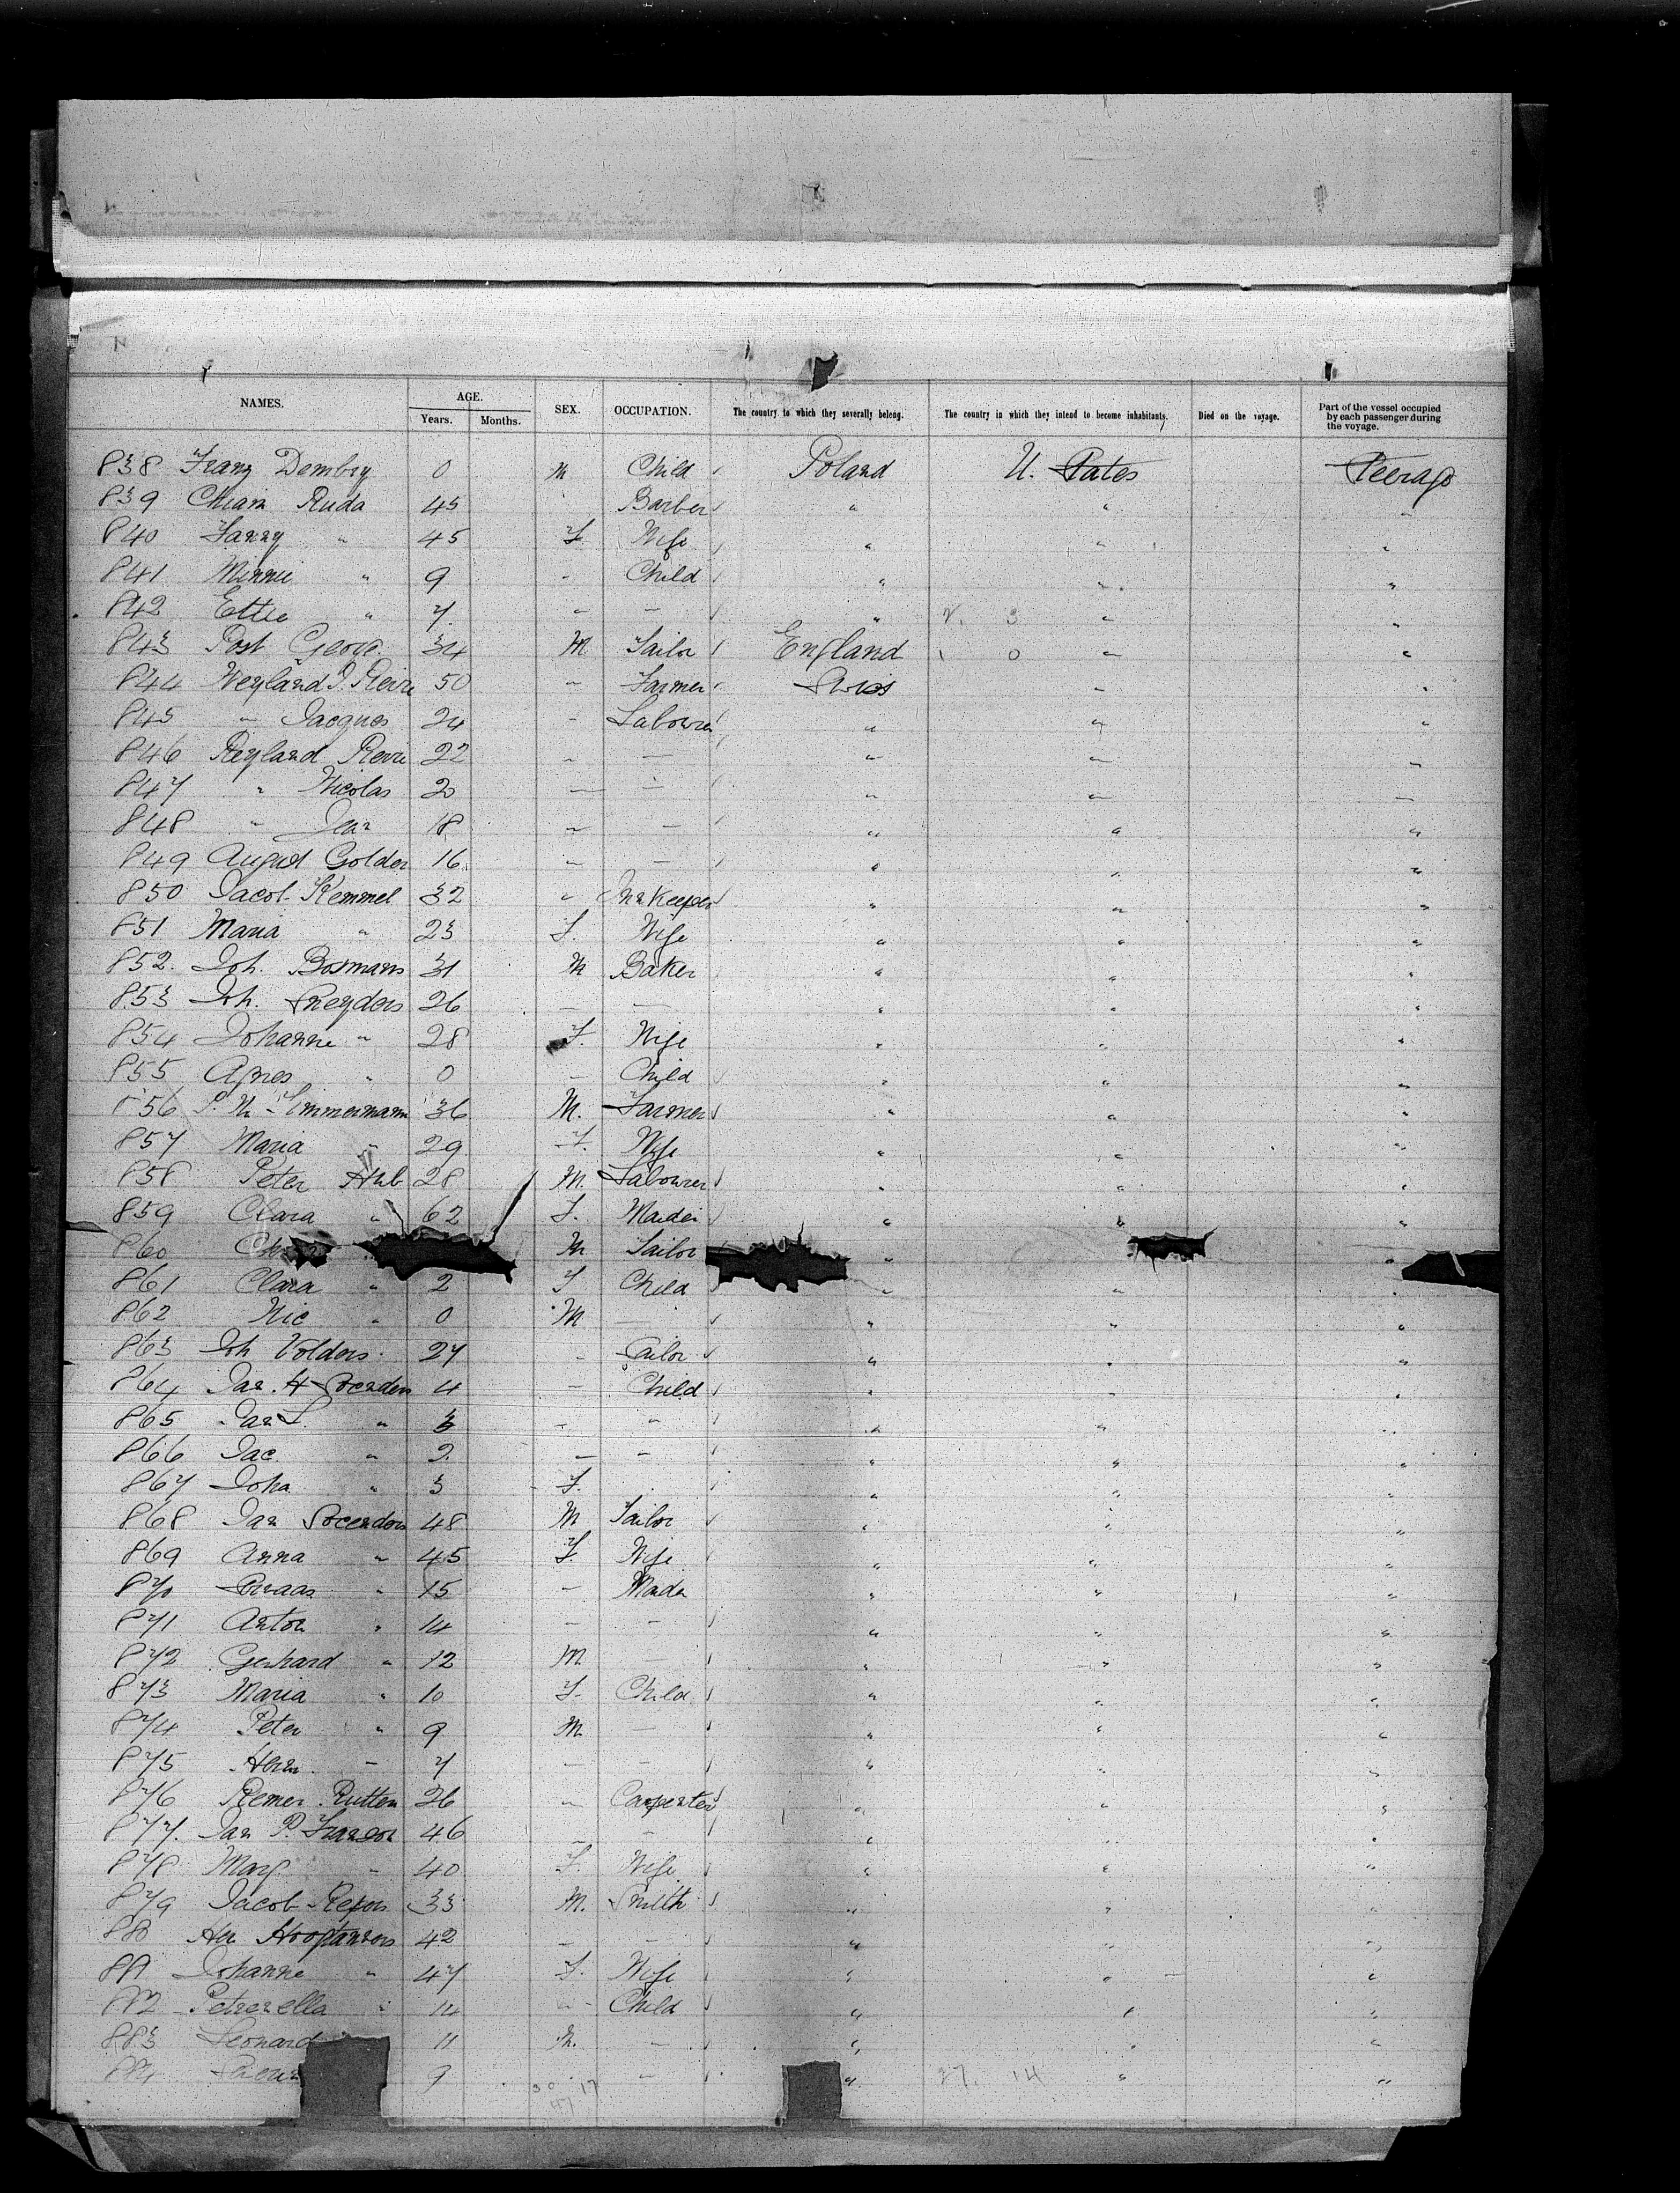 NAMES. AGE. SEX. OCCUPATION. The country to which they severally belong. The country in which they intend to become inhabitants. Died on the voyage. Part of the vessel occupied by each passenger during the voyage.
Years. Months.
838 Franz Dembry 0 M Child Poland U. States Steerage
839 Chiam Ruda 45 Barber " " "
840 Fanny " 45 F. Wife " " "
841 Minnie " 9 " Child " " "
842 Ettie " 7. " — " 2. 3 " "
843 Post George. 34 M Tailor England 1 0 " "
844 Weyland J. Pierre 50 " Farmer Swiss " "
845 " Jacques 24 " Labourer " " "
846 Weyland Pierre 22 " — " " "
847 " Nicolas 20 — — " " "
848 " Jean 18 " — " " "
849 August Golden 16 — — " " "
850 Jacob Kemmel 32 " Innkeeper " " "
851 Maria " 23 F. Wife " " "
852. Joh. Bosmans 31 M Baker " " "
853 Joh. Sneyders 26 — — " " "
854 Johanne " 28 F. Wife " " "
855 Agnes " 0 — Child " " "
856 P. M. Zimmermann 36 M. Farmer " " "
857 Maria " 29 F. Wife " " "
858 Peter Hub 28 M. Labourer " " "
859 Clara " 62 F. Maiden " " "
860 M Tailor " "
861 Clara " 2 F Child " " "
862 Nic " 0 M — " " "
863 Joh Volders 27 " Tailor " " "
864 Jan. H 4 — Child " " "
865 Jan L. " 3 — " " " "
866 Jac. " 2. — — " " "
867 Joha " 3 F. " " "
868 Jan 48 M Tailor " " "
869 Anna " 45 F. Wife " " "
870 " 15 — Maiden " " "
871 Anton " 14 — — " " "
872 Gerhard " 12 M — " " "
873 Maria " 10 F. Child " " "
874 Peter " 9 M. — " " "
875 Herm. — 7 — — " " "
876 Remer Rutten 26 " Carpenter " " "
877. Jan P. Franson 46 — — " " "
878 Marg " 40 F. Wife " " "
879 Jacob 33 M. Smith " " "
880 Her 42 — — " " "
881 Johanne " 47 F. Wife " " "
882 Petronella " 14 " Child " " "
883 Leonard 11 M. — " " "
884 9 — " 27. 14 " "
30 17
47